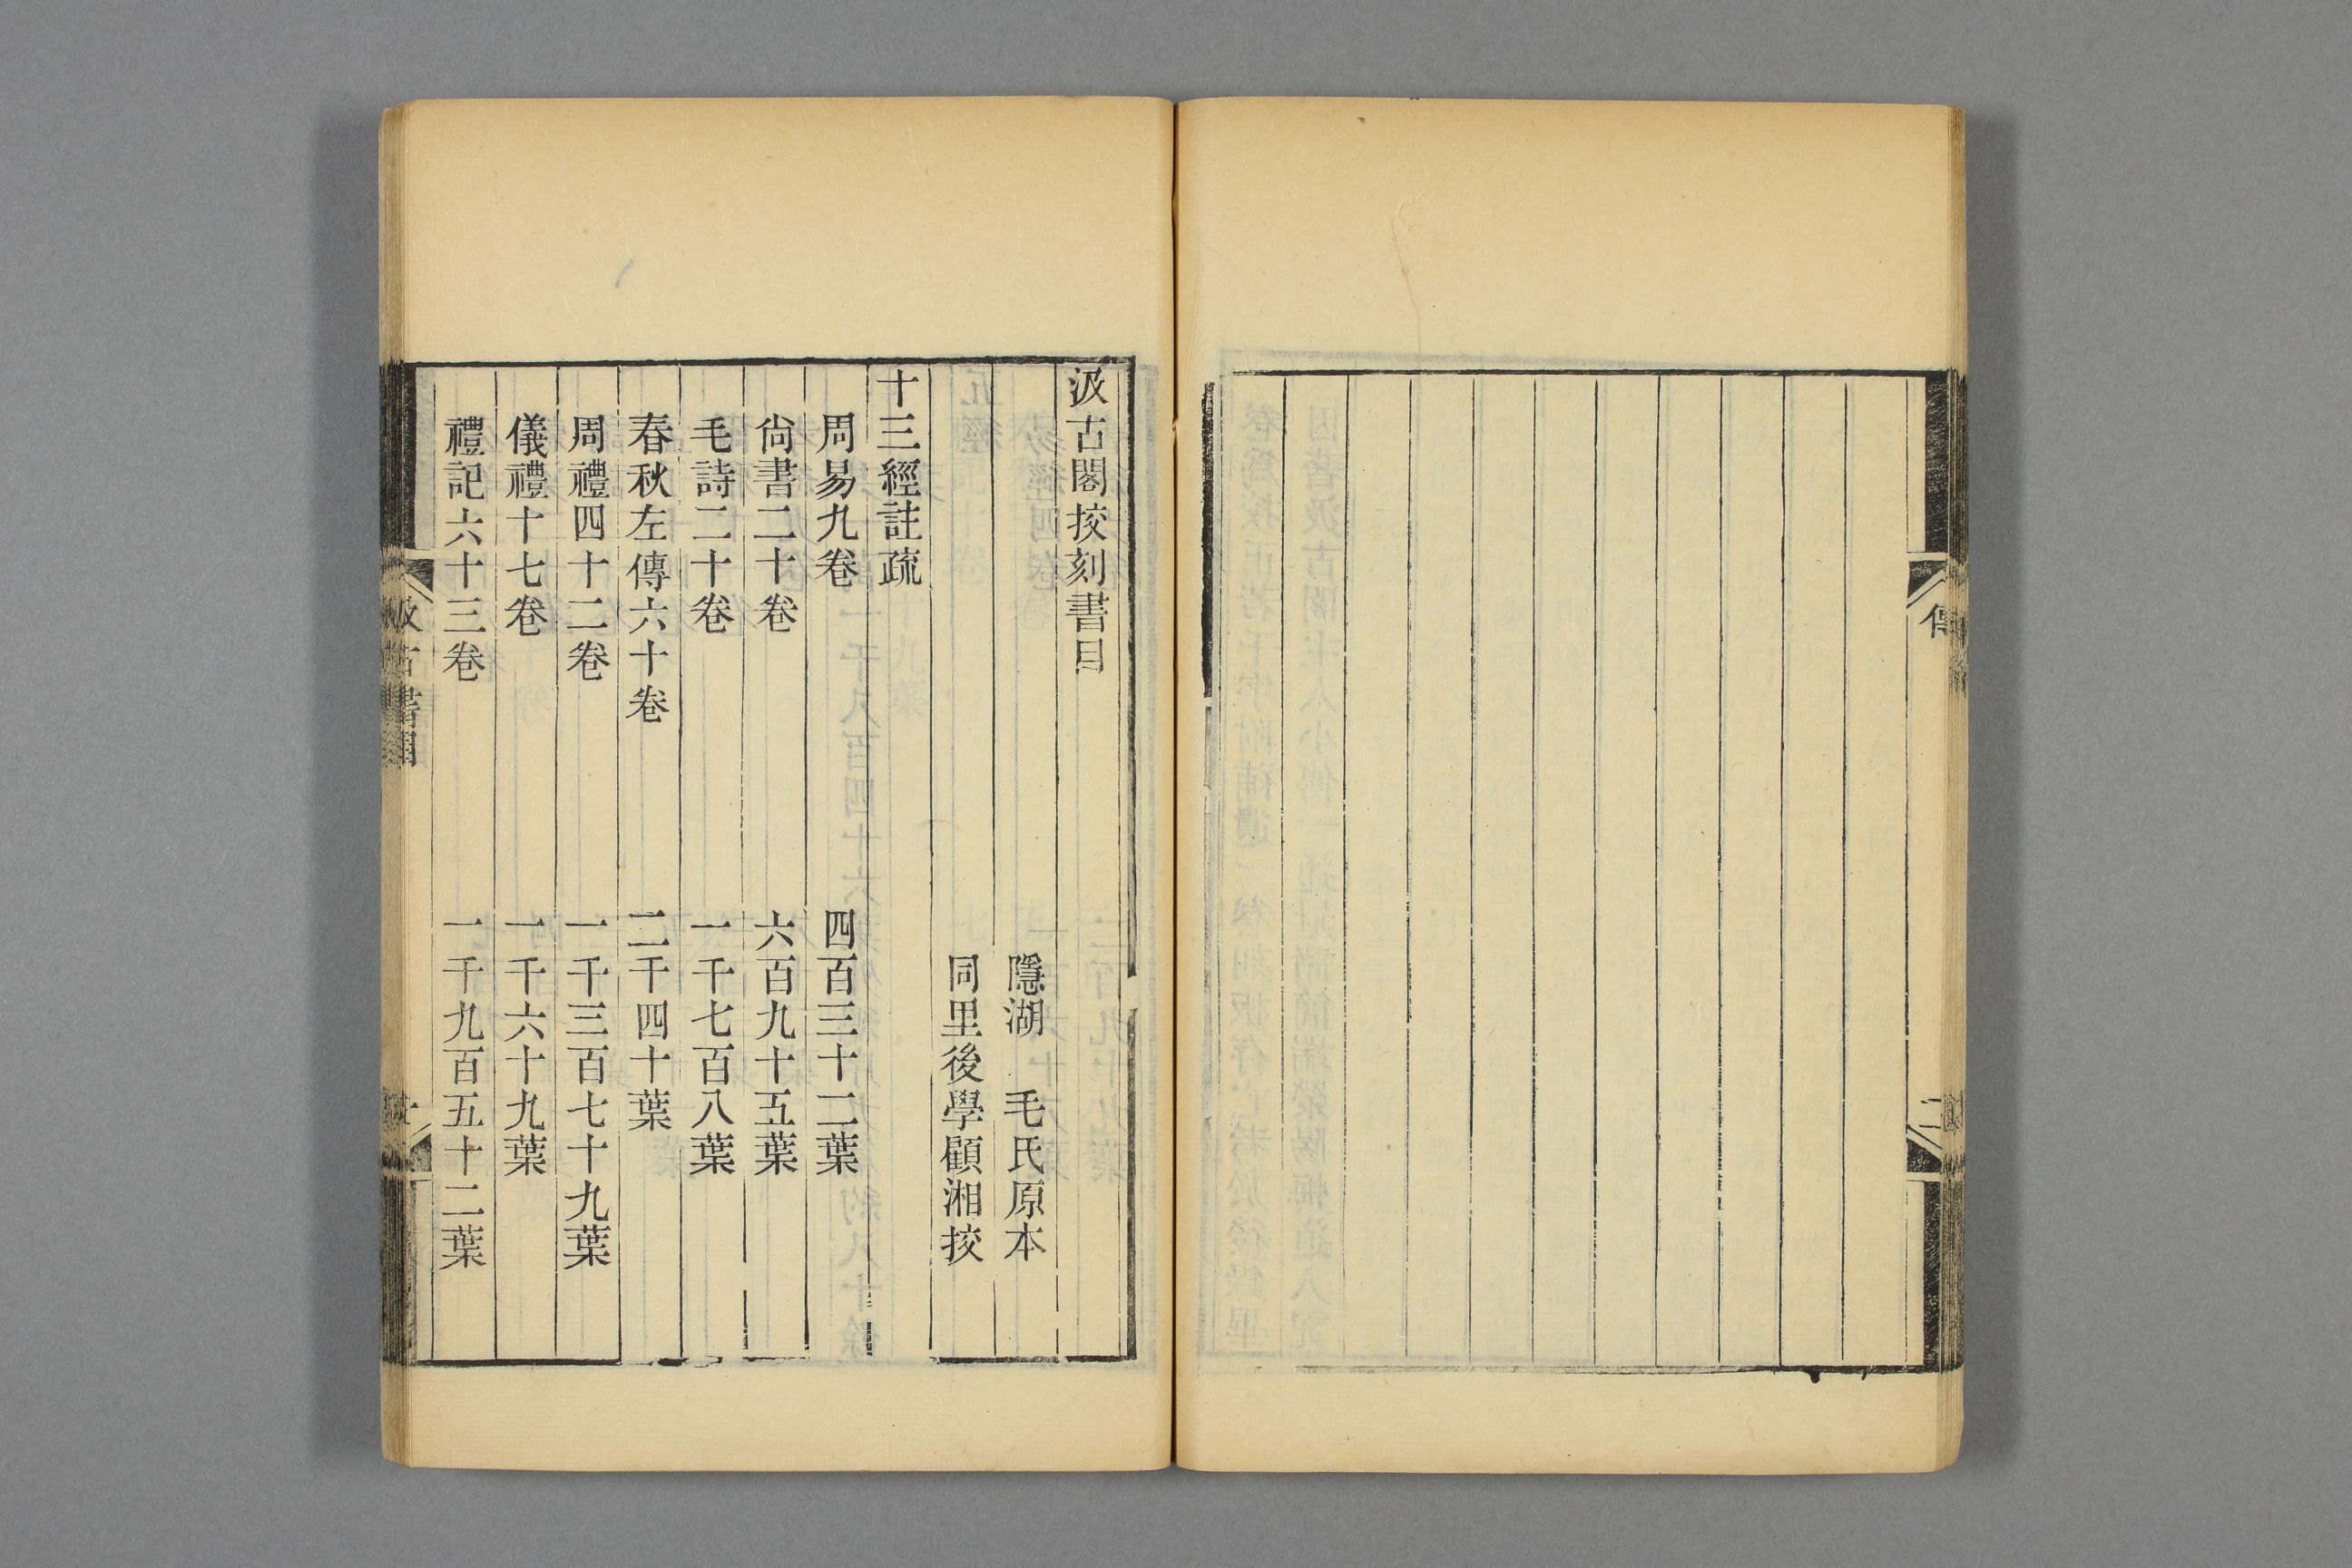 汲古閣挍刻書目
隱湖　毛氏原本
同里後學顧湘挍
十三經註疏
周易九卷　四百三十二葉
尙書二十卷　六百九十五葉
毛詩二十卷　一千七百八葉
春秋左傳六十卷　二千四十葉
周禮四十二卷　一千三百七十九葉
儀禮十七卷　一千六十九葉
禮記六十三卷　一千九百五十二葉
汲古書目